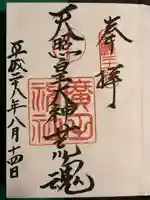 奉拝
天照皇大神荒御魂
平成二八年八月十四日